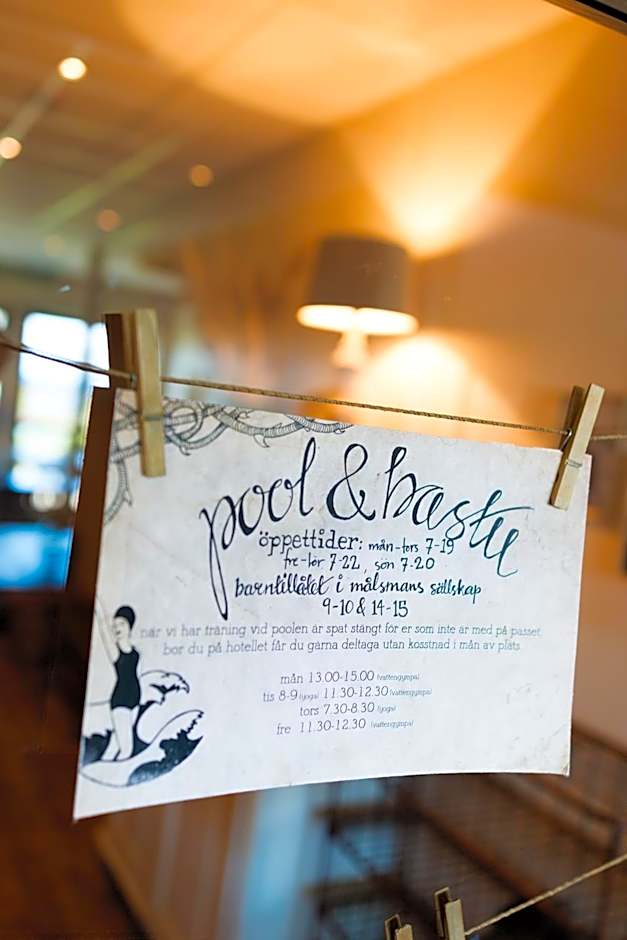 pool & bastu
öppettider: mån-tors 7-19
fre-lör 7-22, sön 7-20
barntillåtet i målsmans sällskap
9-10 & 14-15
när vi har träning vid poolen är spat stängt för er som inte är med på passet.
bor du på hotellet får du gärna deltaga utan kosstnad i mån av plats.
mån 13.00-15.00 (vattengympa)
tis 8-9 (yoga) 11.30-12.30 (vattengympa)
tors 7.30-8.30 (yoga)
fre 11.30-12.30 (vattengympa)